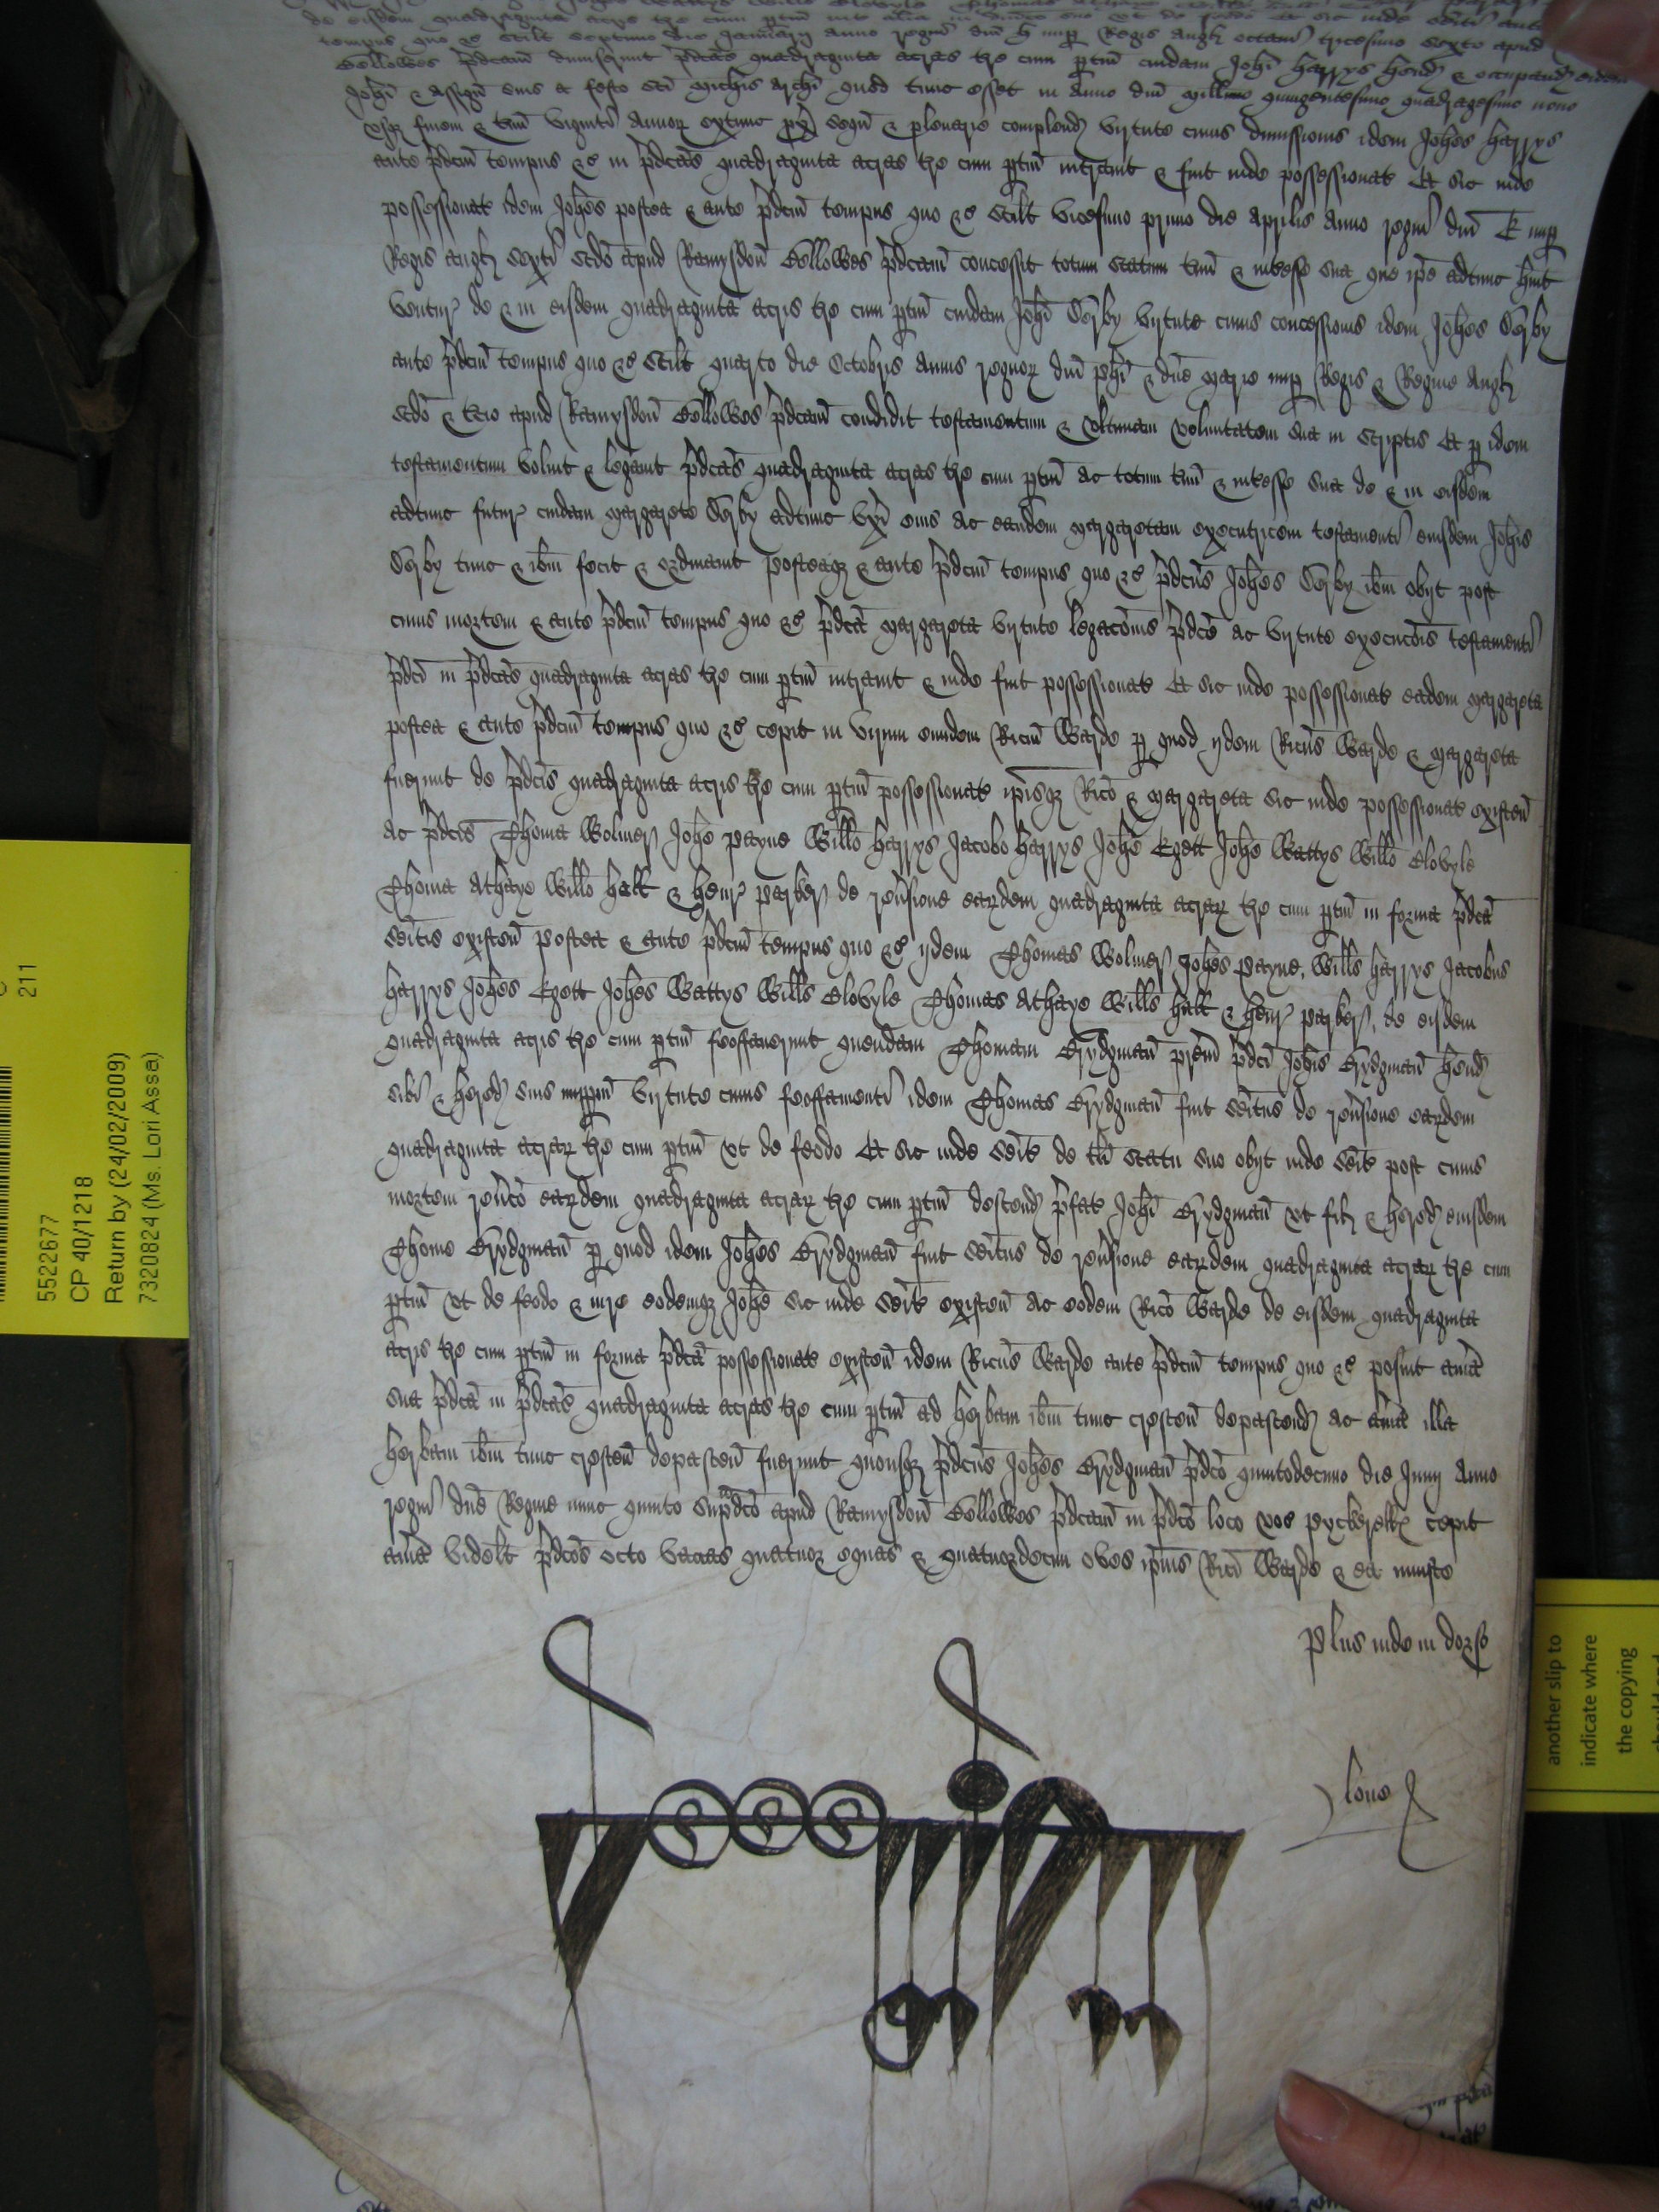 de eisdem quadraginta acris tre cum ptin
tempus quo &c scilt septimo die Januarij Anno regni dni H nup Regis Angl octavi tricesimo sexto apud
Bellowes pdcam dimiserunt pdcas quadraginta acras tre cum ptin cuidam Johi Harrys hend & occupand eidem
Johi & assign suis a festo sci Michis Archi quod tunc esset in anno dni Millimo quingentesimo quadragesimo nono
usqz finem & tmi viginti Annor extunc px sequen & plenarie complend virtute cuius dimissionis idem Johes Harrys
ante pdcm tempus &c in pdcas quadraginta acras tre cum ptin intravit & fuit inde possessionat Et sic inde
possessionat idem Johes postea & ante pdcm tempus quo &c scilt vicesimo primo die Aprilis Anno regni dni E nup
Regis Angl sexti scdo apud Ramysdon Bellowes pdcam concessit totum statum tmi & interesse sua que ipe adtunc huit
ventur de & in eisdem quadraginta acris tre cum ptin cuidam Johi Derby virtute cuius concessionis idem Johes Derby
ante pdcm tempus quo &c scilt quarto die Octobris Annis regnor dni Phi & dne Marie nup Regis & Regine Angl
scdo & tcio apud Ramysdon Bellowes pdcam condidit testamentum & ultimam voluntatem sua in scriptis Et p idem
testamentum voluit & legavit pdcas quadraginta acras tre cum ptin ac totum tmi & interesse sua de & in eisdem
adtunc futur cuidam Margarete Derby adtunc uxi eius ac eandem Margaretam executricem testamenti eiusdem Johis
Derby tunc & ibm fecit & ordinavit posteaqz & ante pdcm tempus quo &c pdcus Johes Derby ibm obijt post
cuius mortem & ante pdcm tempus quo &c pdca Margareta virtute legacois pdce ac virtute execucois testamenti
pdci in pdcas quadraginta acras tre cum ptin intravit & inde fuit possessionat Et sic inde possessionat eadem Margareta
postea & ante pdcm tempus quo &c cepit in virum eundem Ricm Warde p quod ijdem Ricus Warde & Margareta
fuerunt de pdcis quadraginta acris tre cum ptin possessionat ipisqz Rico & Margareta sic inde possessionat existen
ac pdcis Thoma Wolmer Johe Payne Willo Harrys Jacobo Harrys Johe Egett Johe Wattys Willo Clovyle
Thoma Athaye Willo Hall & Henr Parker de revsione earzdem quadraginta acrar tre cum ptin in forma pdca
seitis existen postea & ante pdcm tempus quo &c ijdem Thomas Wolmer Johes Payne Wills Harrys Jacobus
Harrys Johes Egett Johes Wattys Wills Clovyle Thomas Athaye Wills Hall & Henr Parker de eisdem
quadraginta acris tre cum ptin feoffaverunt quendam Thomam Brydgman prem pdci Johis Brydgman hend
sibi & hered suis imppm virtute cuius feoffamenti idem Thomas Brydgman fuit seitus de revsione earzdem
quadraginta acrar tre cum ptin ut de feodo Et sic inde seit de tli statu suo obijt inde seit post cuius
mortem revco earzdem quadraginta acrar tre cum ptin descend pfat Johi Brydgman ut fil & hered eiusdem
Thome Brydgman p quod idem Johes Brydgman fuit seitus de revsione earzdem quadraginta acrar tre cum
ptin ut de feodo & iure eodemqz Johe sic inde seit existen ac eodem Rico Warde de eisdem quadraginta
acris tre cum ptin in forma pdca possessionat existen idem Ricus Warde ante pdcm tempus quo &c posuit avia
sua pdca in pdcas quadraginta acras tre cum ptin ad herbam ibm tunc crescen depascend ac avia illa
herbam ibm tunc crescen depascen fuerunt quousqz pdcus Johes Brydgman pdco quintodecimo die Junij Anno
regni dne Regine nunc quinto supdco apud Ramysdon Bellowes pdcam in pdco loco voc Pyckerell cepit
avia videlt pdcos octo vaccas quatuor equas & quatuordecim oves ipius Rici Warde & ea iniuste
Plus inde in dorso
lone
211
5522677
CP 40/1218
Return by (24/02/2009)
7320824 (Ms. Lori Assa)
another slip to
indicate where
the copying